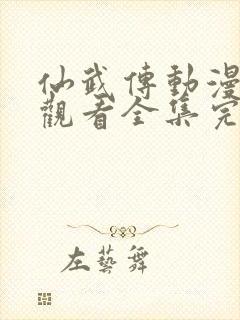 仙武傳動漫
觀看全集完
左藝舞